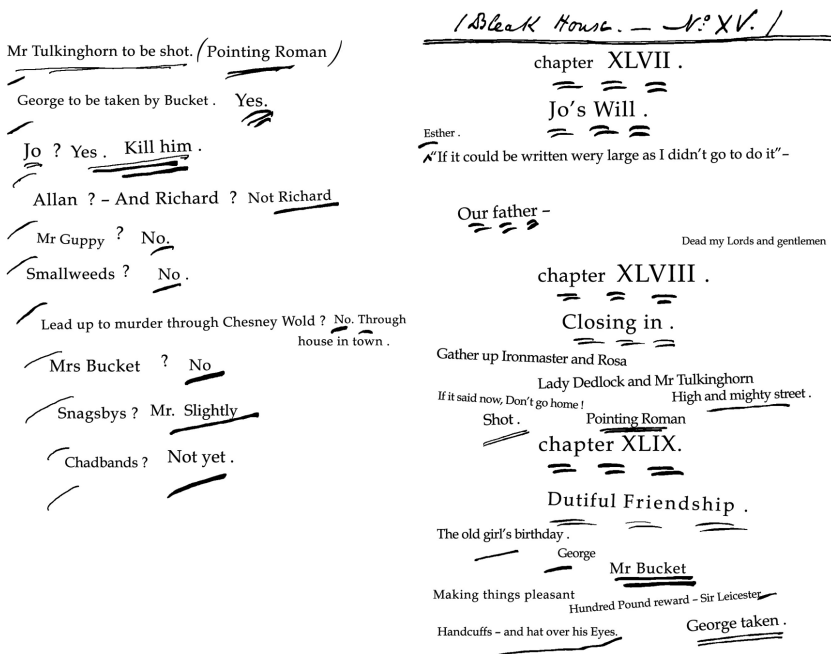 Mr Tulkinghorn to be shot. (Pointing Roman)
George to be taken by Bucket . Yes.
Jo ? Yes . Kill him .
Allan ? – And Richard ? Not Richard
Mr Guppy ? No.
Smallweeds ? No .
Lead up to murder through Chesney Wold ? No. Through
house in town .
Mrs Bucket ? No
Snagsbys ? Mr. Slightly
Chadbands ? Not yet .
/Bleak House. — No. XV. /
chapter XLVII .
Jo's Will .
Esther .
"If it could be written wery large as I didn't go to do it"–
Our father –
Dead my Lords and gentlemen
chapter XLVIII .
Closing in .
Gather up Ironmaster and Rosa
Lady Dedlock and Mr Tulkinghorn
If it said now, Don't go home ! High and mighty street .
Shot . Pointing Roman
chapter XLIX.
Dutiful Friendship .
The old girl's birthday .
George
Mr Bucket
Making things pleasant
Hundred Pound reward – Sir Leicester
Handcuffs – and hat over his Eyes. George taken .